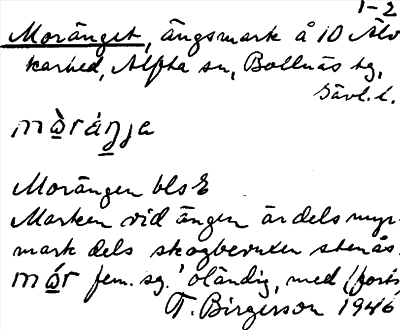 1-2
Moränget, ängsmark å 10 Älv
karhed, Alfta sn, Bollnäs tg,
Gävl. l.
mo̱̊̀ráŋja
Morängen bls E
Marken vid ängen är dels myr-
mark dels skogbevuxen stenås.
mǻ̱r fem. sg. 'oländig, med (forts)
T. Birgerson 1946